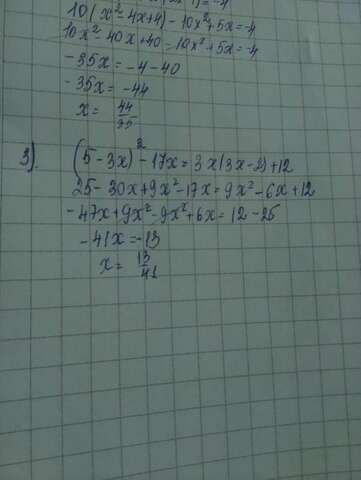 10(x²-4x+4)-10x²+5x=-4
10x²-40x+40-10x²+5x=-4
-35x=-4-40
-35x=-44
x=44/35
3). (5-3x)²-17x=3x(3x-2)+12
25-30x+9x²-17x=9x²-6x+12
-47x+9x²-9x²+6x=12-25
-41x=-13
x=13/41